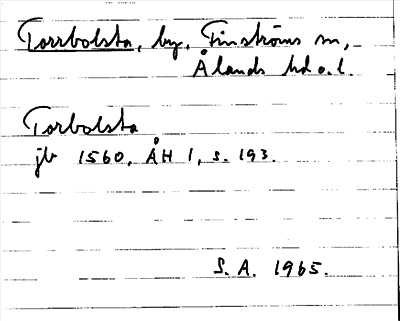 Torrbolsta, by, Finströms sn,
Ålands hd o. l.
Torbolsta
jb 1560, ÅH 1, s. 193.
S. A. 1965.